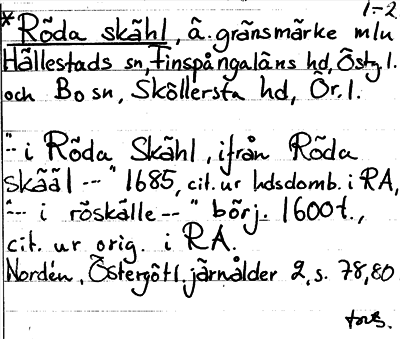 1-2
*Röda skähl, ä. gränsmärke mlu
Hällestads sn, Finspångaläns hd, Östg l.
och Bo sn, Sköllersta hd, Ör. l.
"-- i Röda Skähl, ifrån Röda
skääl --" 1685, cit. ur hdsdomb. i RA,
"-- i röskälle --" börj. 1600t.,
cit. ur orig. i RA.
Nordén, Östergötl. järnålder 2, s. 78, 80